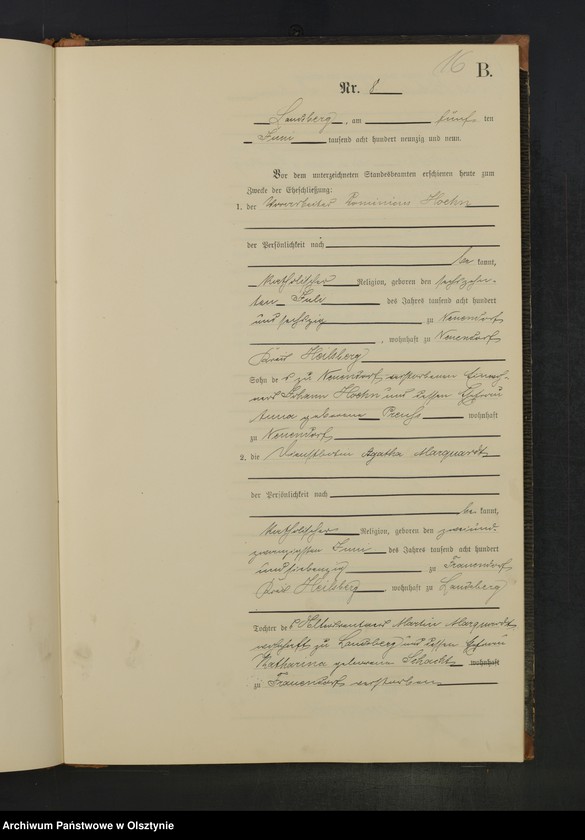 16
B.
Nr. 8
Landsberg, am fünf ten
Juni tausend acht hundert neunzig und neun.
Vor dem unterzeichneten Standesbeamten erschienen heute zum
Zwecke der Eheschließung:
1. der Vorarbeiter Dominicus Hoehn
der Persönlichkeit nach
be kannt,
katholischer Religion, geboren den sechszehn-
ten Juli des Jahres tausend acht hundert
und sechszig zu Neuendorf
, wohnhaft zu Neuendorf
Kreis Heilsberg
Sohn des zu Neuendorf verstorbenen
Johann Hoehn und dessen Ehefrau
Anna geborene Preuß wohnhaft
zu Neuendorf
2. die Dienstbotin Agatha Marquardt
der Persönlichkeit nach
be kannt,
katholischer Religion, geboren den zweiund-
zwanzigsten Juni des Jahres tausend acht hundert
und siebenzig zu Frauendorf
Kreis Heilsberg, wohnhaft zu Landsberg
Tochter des Martin Marquardt
wohnhaft zu Landsberg und dessen Ehefrau
Katharina geborene Schacht wohnhaft
zu Frauendorf verstorben
Archiwum Państwowe w Olsztynie